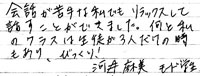 会話が苦手な私でも リラックスして
話すことができました。何と私
のクラスは生徒が3人だけの時
もあり、びっくり!
河井 麻美